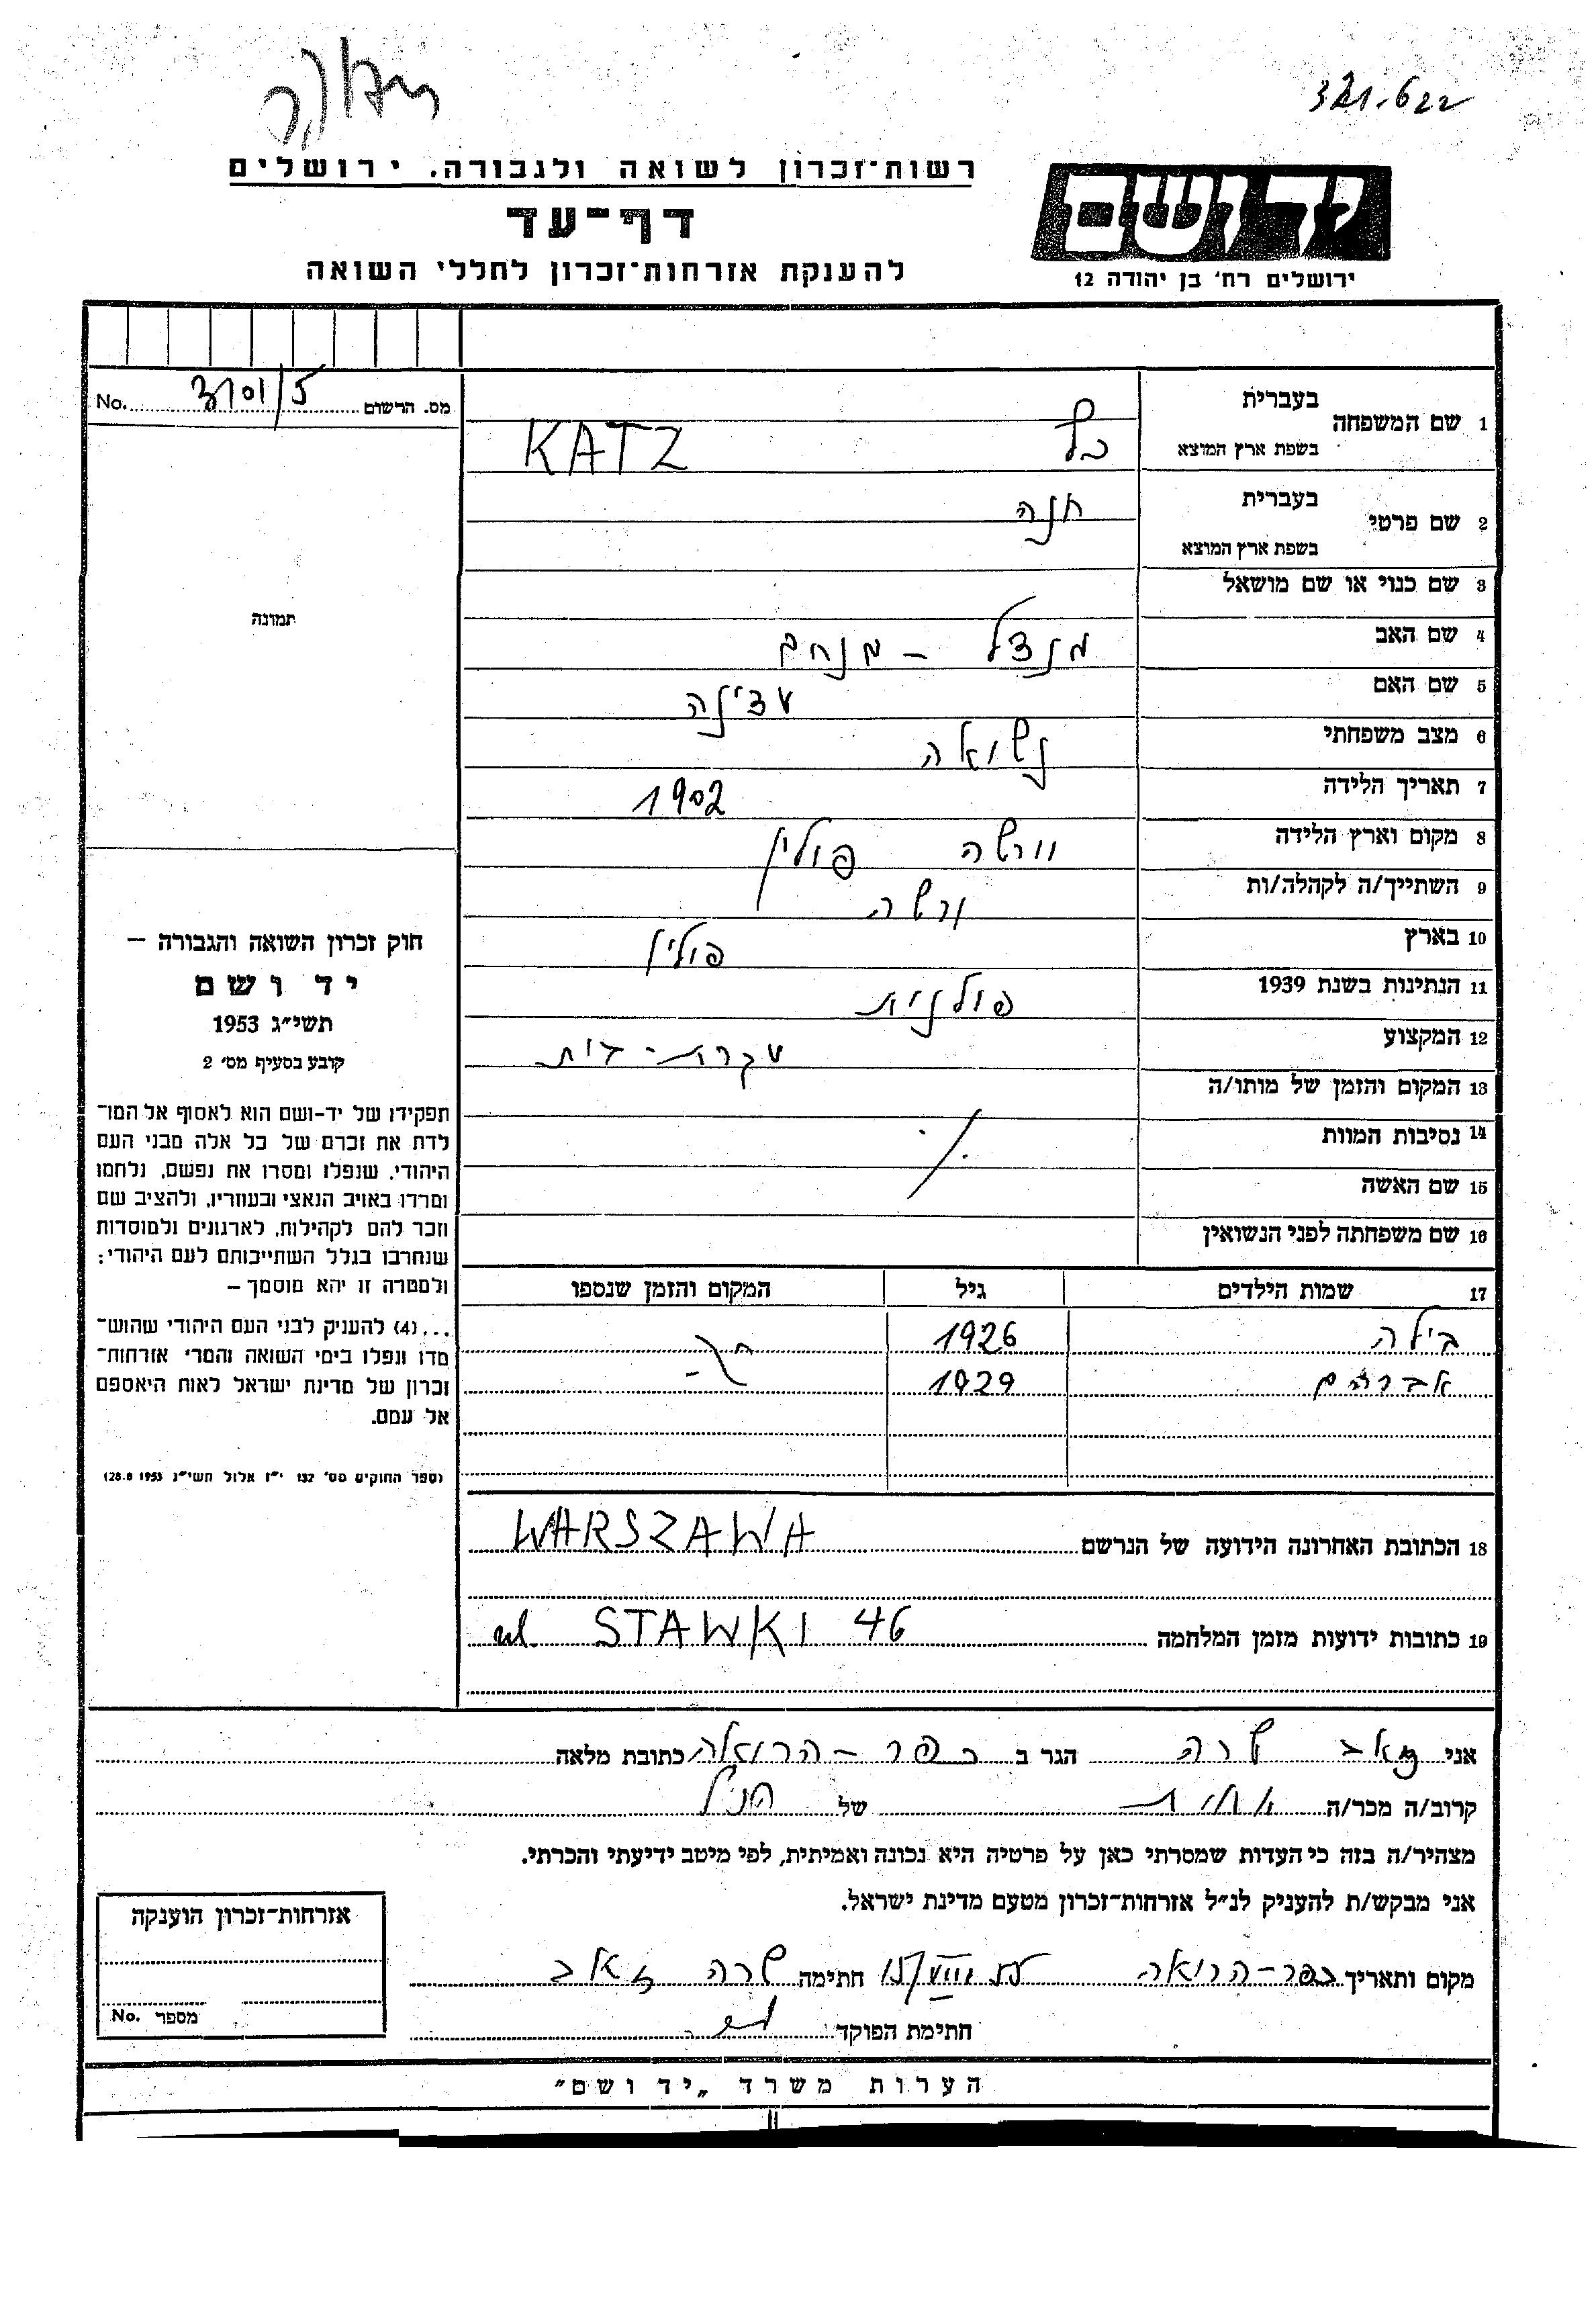 321.622
רשות־זכרון לשואה ולגבורה. ירושלים
יד ושם
דף־עד
ירושלים רח' בן יהודה 12
להענקת אזרחות־זכרון לחללי השואה
מס. הרשום 3101/5 No.
1 שם המשפחה
בעברית כץ
בשפת ארץ המוצא KATZ
2 שם פרטי
בעברית חנה
בשפת ארץ המוצא
3 שם כנוי או שם מושאל
4 שם האב מנדל - מנחם
5 שם האם עדינה
6 מצב משפחתי נשואה
7 תאריך הלידה 1902
8 מקום וארץ הלידה וורשה פולין
9 השתייך/ה לקהלה/ות ורשה
10 בארץ פולין
11 הנתינות בשנת 1939 פולנית
12 המקצוע עקרת-בית
13 המקום והזמן של מותו/ה
14 נסיבות המוות
15 שם האשה
16 שם משפחתה לפני הנשואין
17 שמות הילדים גיל המקום והזמן שנספו
בילה 1926
אברהם 1929
18 הכתובת האחרונה הידועה של הנרשם WARSZAWA
19 כתובות ידועות מזמן המלחמה ul. STAWKI 46
תמונה
חוק זכרון השואה והגבורה –
יד ושם
תשי״ג 1953
קובע בסעיף מס׳ 2
תפקידו של יד-ושם הוא לאסוף אל המו־
לדת את זכרם של כל אלה מבני העם
היהודי, שנפלו ומסרו את נפשם, נלחמו
ומרדו באויב הנאצי ובעוזריו, ולהציב שם
וזכר להם לקהילות, לארגונים ולמוסדות
שנחרבו בגלל השתייכותם לעם היהודי;
ולמטרה זו יהא מוסמך –
...(4) להעניק לבני העם היהודי שהוש־
מדו ונפלו בימי השואה והמרי אזרחות־
זכרון של מדינת ישראל לאות היאספם
אל עמם.
(ספר החוקים מס׳ 132 י״ז אלול תשי״ג 28.8 1953)
אני זאב שרה הגר ב כפר-הרואה כתובת מלאה
קרוב/ה מכר/ה אחות של הנ״ל
מצהיר/ה בזה כי העדות שמסרתי כאן על פרטיה היא נכונה ואמיתית, לפי מיטב ידיעתי והכרתי.
אני מבקש/ת להעניק לנ״ל אזרחות־זכרון מטעם מדינת ישראל.
מקום ותאריך כפר-הרואה חתימה שרה זאב
חתימת הפוקד
אזרחות־זכרון הוענקה
מספר No.
הערות משרד „יד ושם״